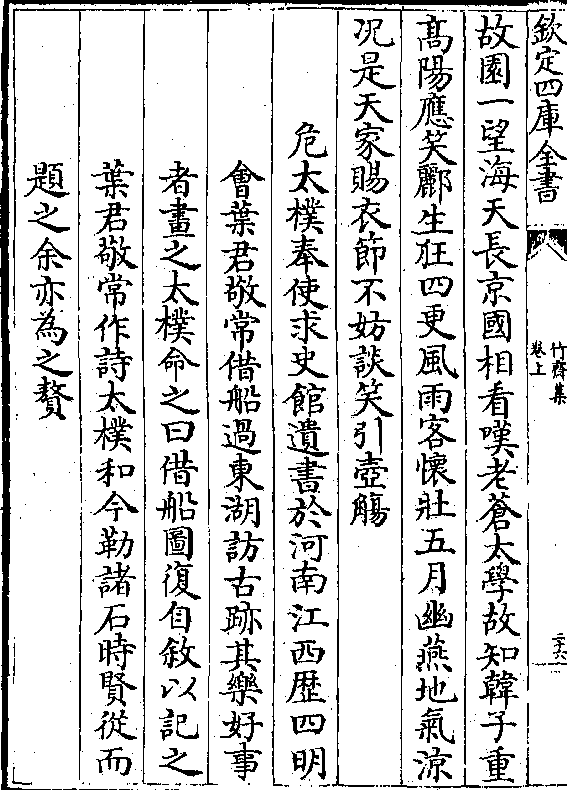 欽定四庫全書
竹齋集
卷上
三六
故園一望海天長京國相看嘆老蒼太學故知韓子重
髙陽應笑酈生狂四更風雨客懷壯五月幽燕地氣涼
况是天家賜衣節不妨談笑引壺觴
危太樸奉使求史館遺書於河南江西歴四明
會葉君敬常借船過東湖訪古跡其樂好事
者畫之太樸命之曰借船圖復自敘以記之
葉君敬常作詩太樸和今勒諸石時賢從而
題之余亦為之贅